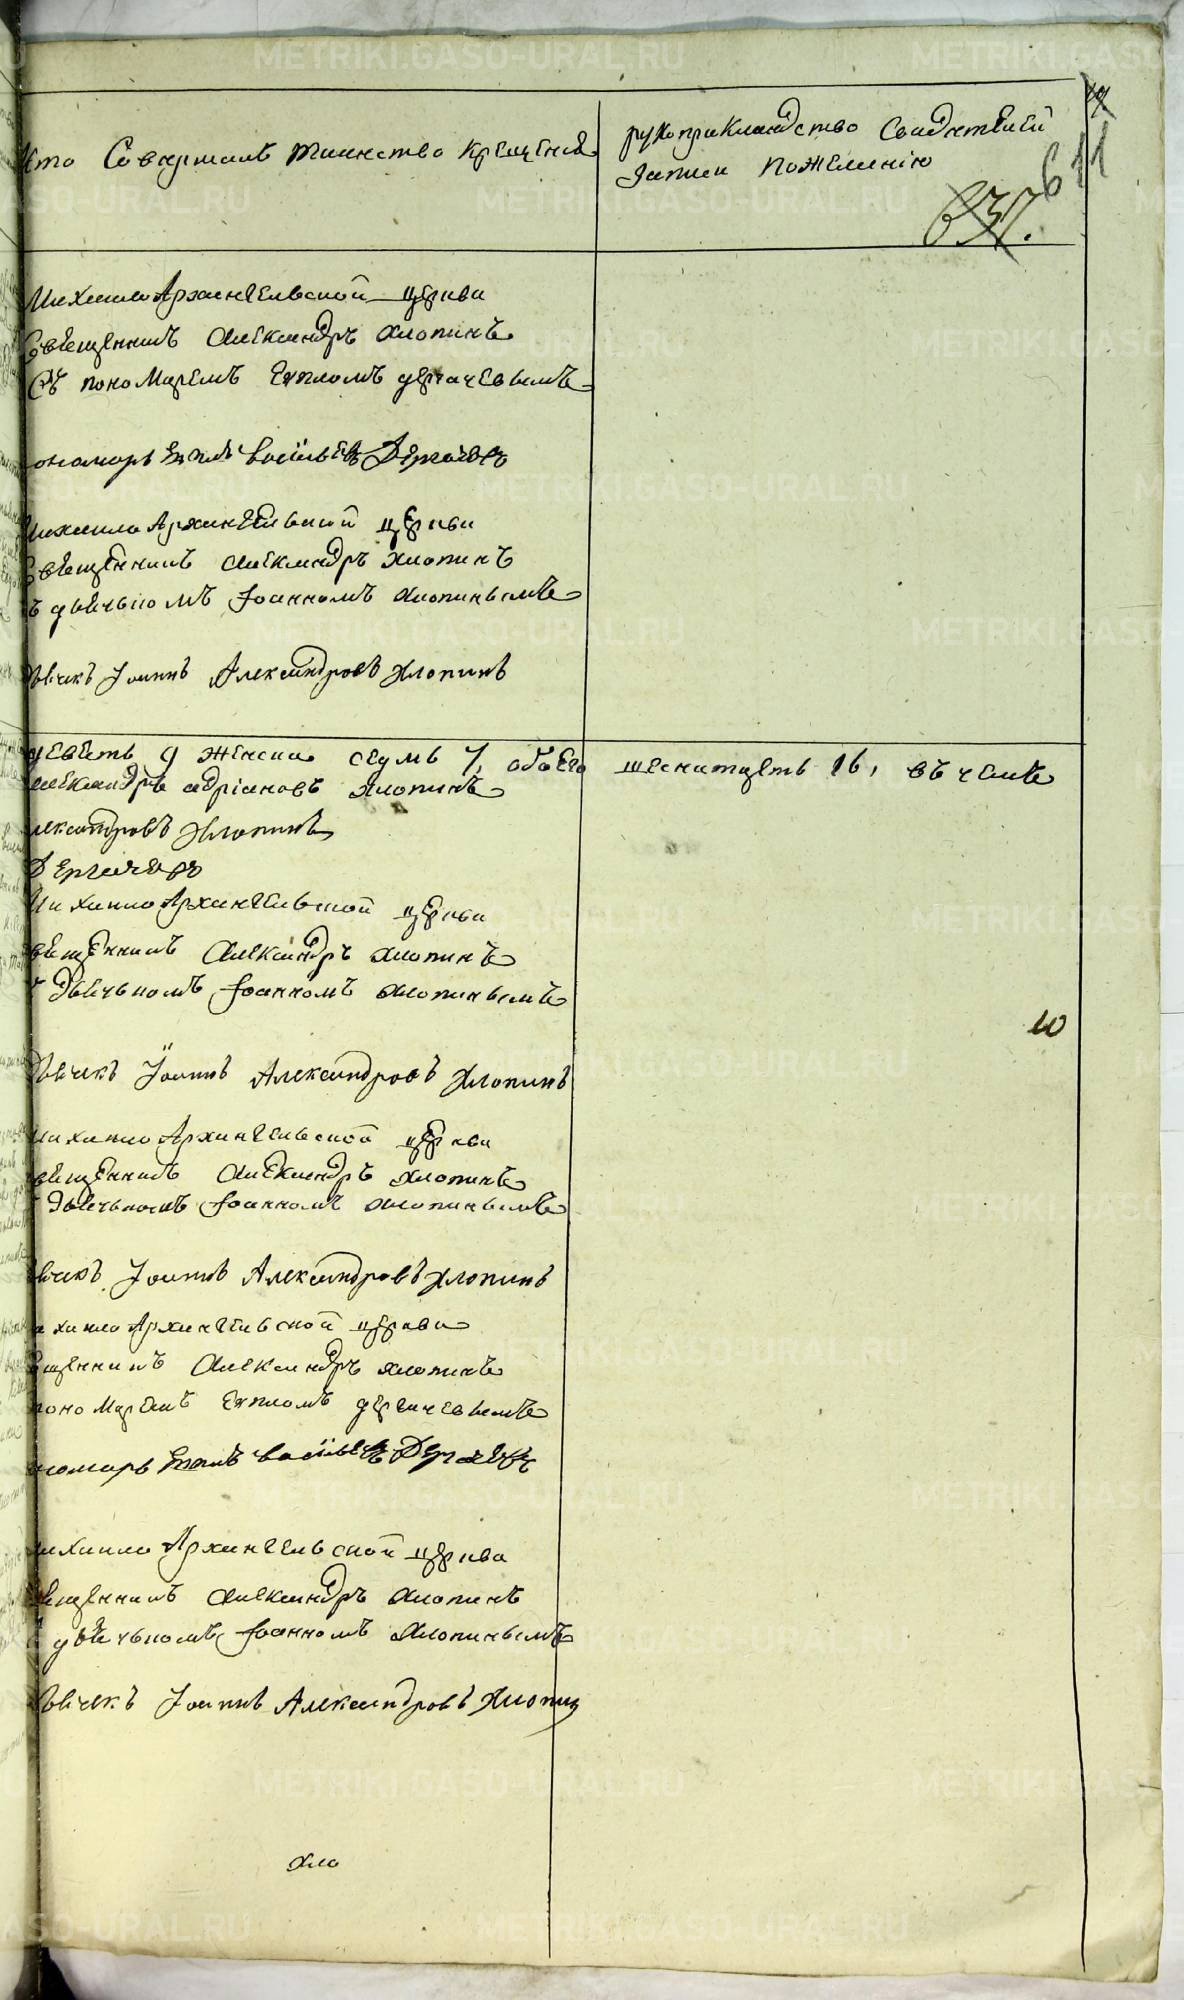 кто Совершалъ таинство крещенiя
рукоприкладство Свидѣтелей
записи пожеланiю
611
637.
Михаило Архангельской церкви
Священникъ Александръ Хлопинъ
Съ пономаремъ Евпломъ дергачевымъ
ономарь Евплъ Васильевъ Дергачевъ
Михаило Архангельской церкви
Священникъ Александръ Хлопинъ
ъ дьячькомъ Iоанномъ Хлопинымъ
дьячекъ Iоаннъ Александровъ Хлопинъ
девять 9 женска седмь 7, обоего шеснатцеть 16, въ числѣ
Александръ Адрiановъ Хлопинъ
лександровъ Хлопинъ
Дергачевъ
Михаило Архангельской церкви
вященникъ Александръ Хлопинъ
ъ Дьячькомъ Iоанномъ Хлопинымъ
10
Дьячекъ Iоаннъ Александровъ Хлопинъ
Михаило Архангельской церкви
вященникъ Александръ Хлопинъ
ъ Дьячькомъ Iоанномъ Хлопинымъ
ьячекъ Iоаннъ Александровъ Хлопинъ
ихаило Архангельской церкви
ященникъ Александръ Хлопинъ
пономаремъ Евпломъ дергачевымъ
ономарь Евплъ Васильевъ Дергачевъ
ихаило Архангельской церкви
вященникъ Александръ Хлопинъ
дьячькомъ Iоанномъ Хлопинымъ
Дьячекъ Iоаннъ Александровъ Хлопин
хло
METRIKI.GASO-URAL.RU